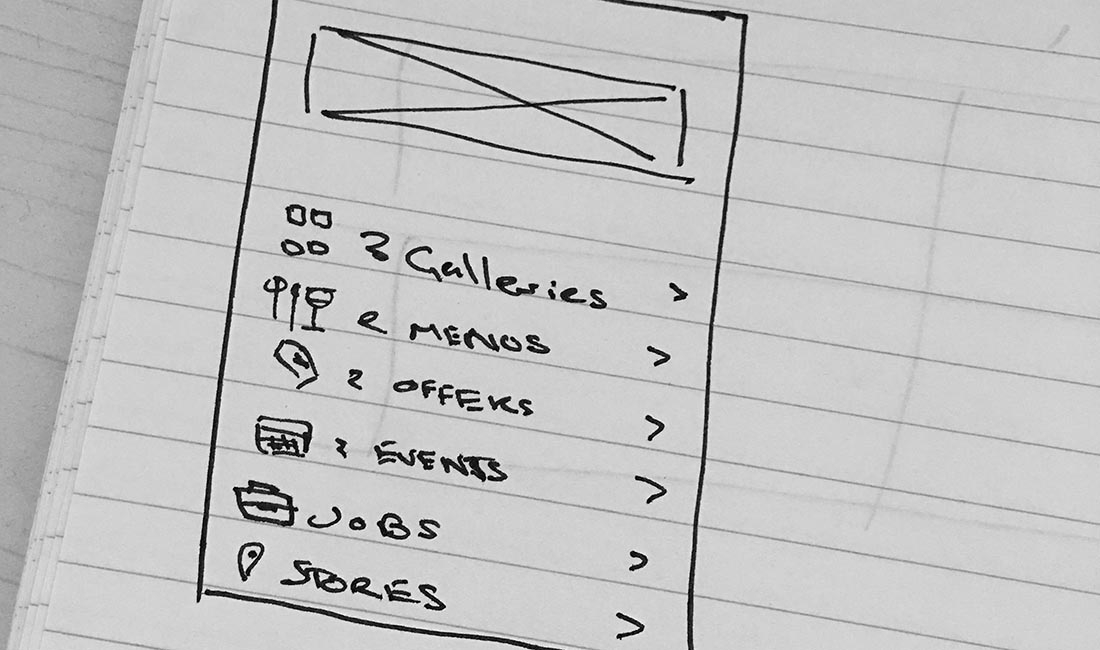 3 Galleries >
2 MENUS >
2 OFFERS >
2 EVENTS >
JOBS >
STORES >